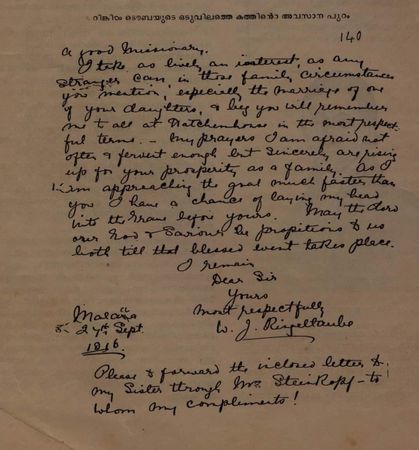 റിങ്കിൾ ടൌബയുടെ ഒടുവിലത്തെ കത്തിന്റെ അവസാന പുറം
140
a good Missionary.
I take as lively an interest, as any
stranger can, in those family circumstances
you mention, especially the marriage of one
of your daughters, & beg you will remember
me to all at Hatchemhouse in the most respect-
ful terms. - My prayers I am afraid not
often & fervent enough but sincerely are rising
up for your prosperity as a family. As I
am approaching the goal much faster than
you I have a chance of laying my head
into the grave before yours. May the Lord
our God & Saviour be propitious to us
both till that blessed event takes place.
I remain
Dear Sir
Yours
most respectfully
W. J. Ringeltaube
Malacca
27th Sept.
1816.
Please to forward the inclosed letter to
my Sister through Mr. Steinkopf - to
whom my compliments!